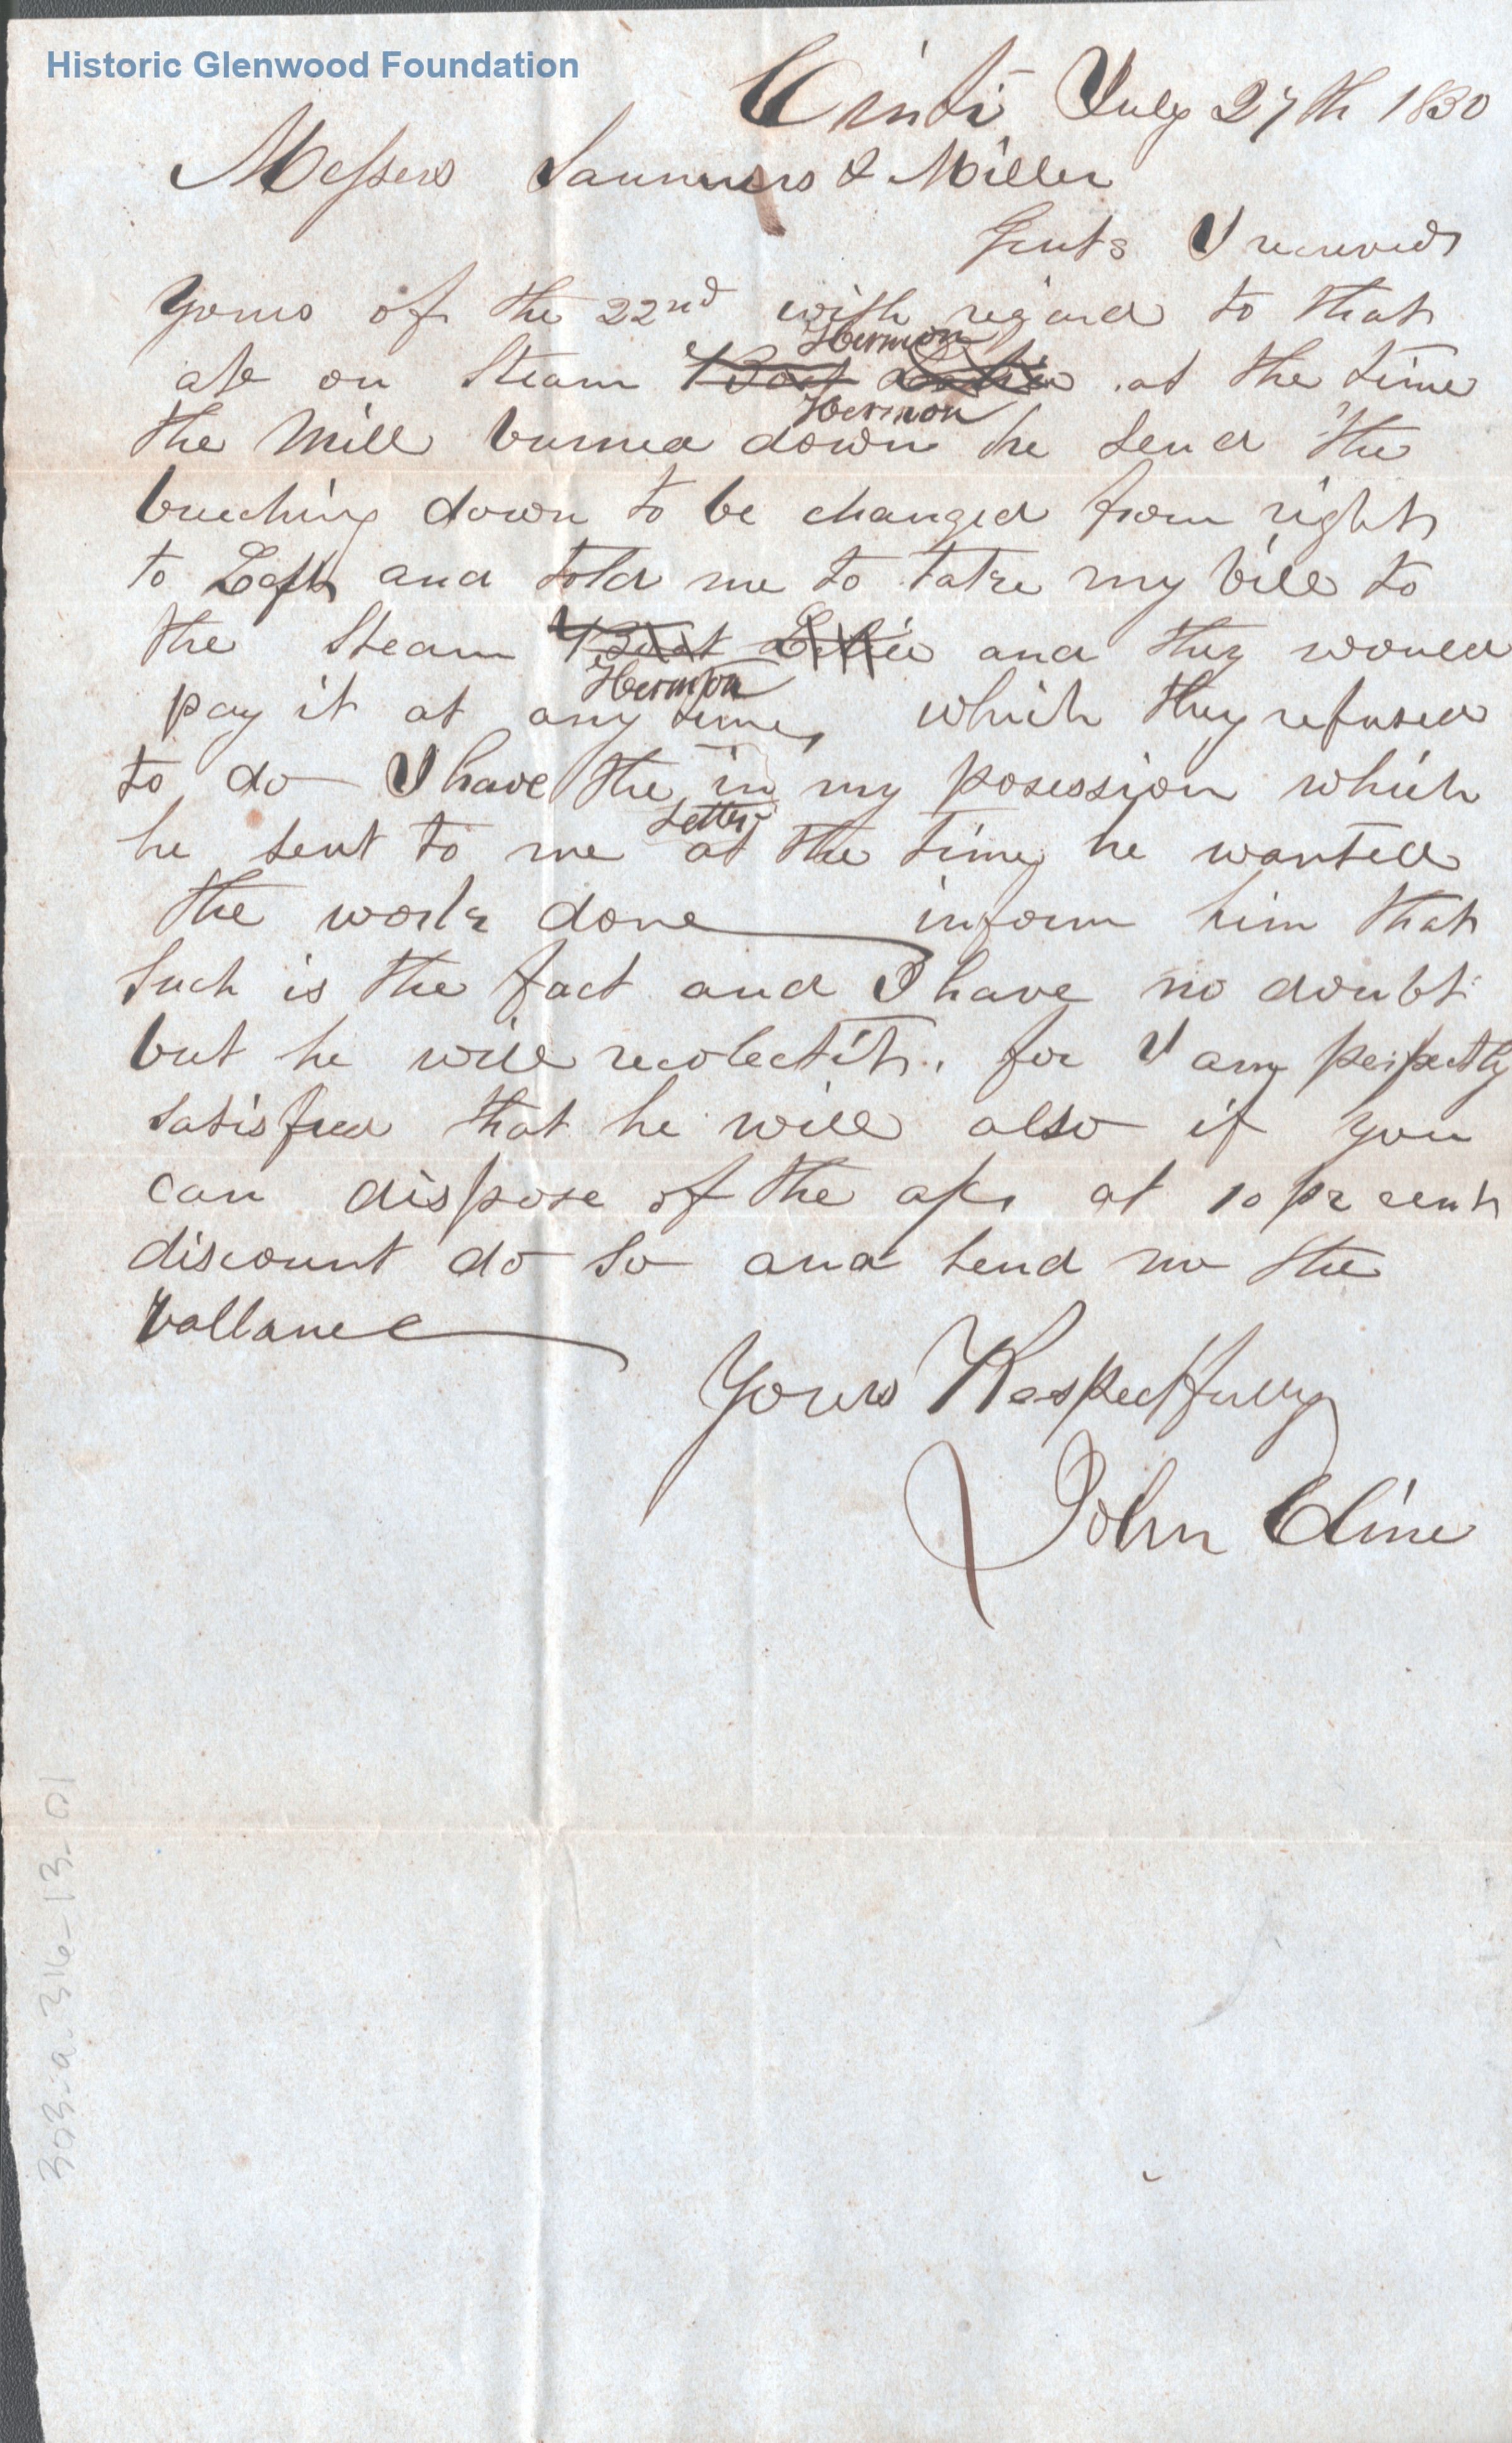 Historic Glenwood Foundation
Cinti July 27th 1830
Messers Saunders & Miller
Gents I received
yours of the 22nd with regard to that
Hermon
on Steam Boat at the time
Hermon
the Mill burned down he send the
bucching down to be changed from right
to Left and told me to take my bill to
the Steam Boat and they would
Hermon
pay it at any time, which they refused
to do I have the in my posession which
Letter
he sent to me at the time he wanted
the work done inform him that
Such is the fact and I have no doubt
but he will recolect it, for I am perfectly
satisfied that he will also if you
can dispose of the at 10 pr cent
discount do so and send me the
ballance
Yours Respectfully
John Cline
303-a-316-13-01